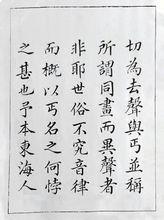 切為去聲與丐並稱
所謂同畫而異聲者
非耶世俗不究音律
而概以丐名之何悖
之甚也予本東海人